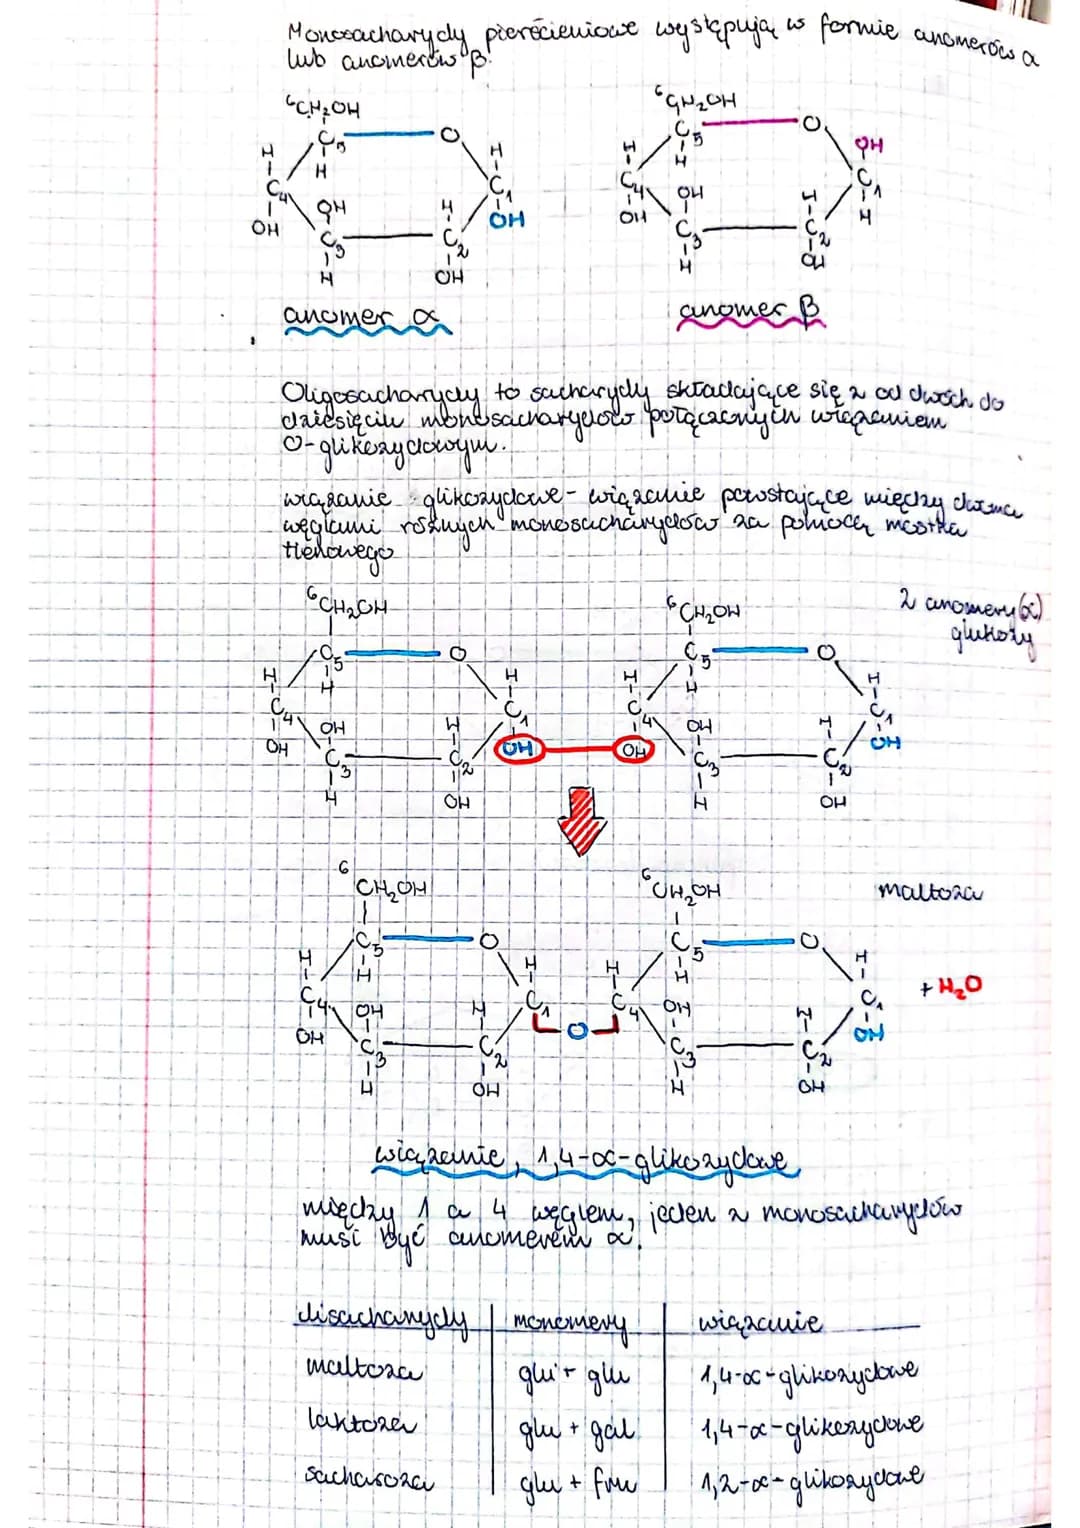 Monosacharydy pierścieniowe występują w formie anomerów α
lub anomerów β.
6CH₂OH
C5 O
H H H
C4 C1
OH OH H OH
C3 C2
H OH
anomer α
6CH₂OH
C5 O
H H OH
C4 C1
OH OH H H
C3 C2
H OH
anomer β
Oligosacharydy to sacharydy składające się z od dwóch do
dziesięciu monosacharydów połączonych wiązaniem
O-glikozydowym.
wiązanie glikozydowe - wiązanie powstające między dwoma
węglami różnych monosacharydów za pomocą mostka
tlenowego
2 anomery (α)
glukozy
6CH₂OH
C5 O
H H H
C4 C1
OH OH H OH
C3 C2
H OH
6CH₂OH
C5 O
H H H
C4 C1
OH OH H OH
C3 C2
H OH
maltoza
6
CH₂OH
C5 O
H H H
C4 C1
OH OH H
C3 C2
H OH
O
6
CH₂OH
C5 O
H H H
C4 C1
OH H OH
C3 C2
H OH
+ H₂O
wiązanie 1,4-α-glikozydowe
między 1 a 4 węglem, jeden z monosacharydów
musi być anomerem α.
disacharydy monomery wiązanie
maltoza glu + glu 1,4-α-glikozydowe
laktoza glu + gal 1,4-α-glikozydowe
sacharoza glu + fru 1,2-α-glikozydowe